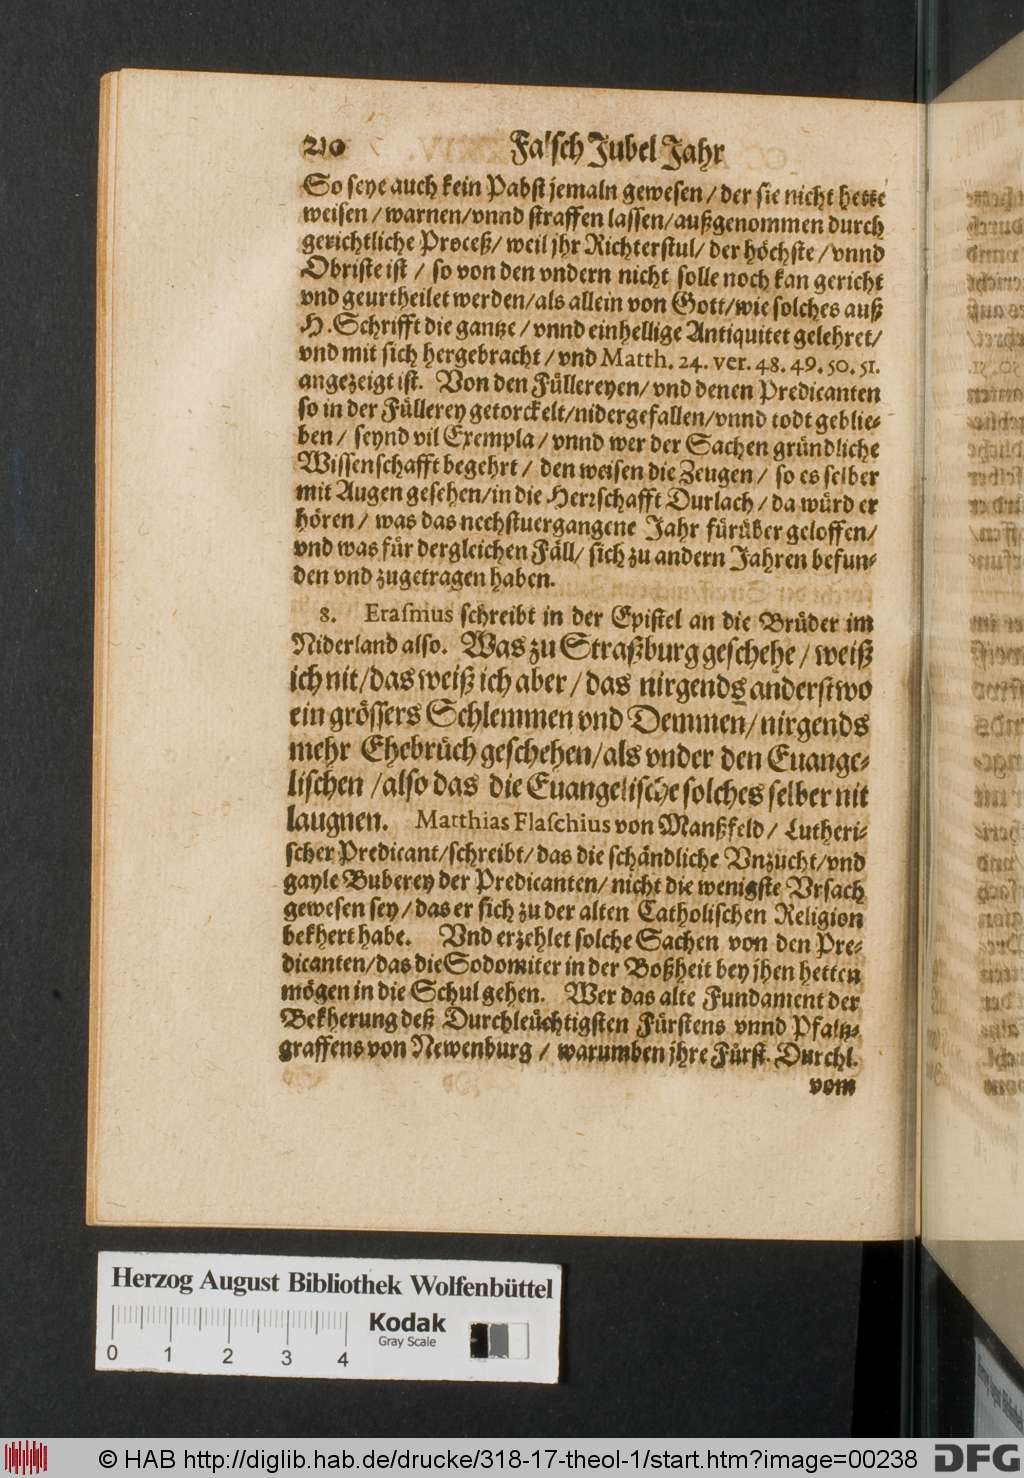 210 Falsch Jubel Jahr
So seye auch kein Pabst jemaln gewesen / der sie nicht hette
weisen / warnen/vnnd straffen lassen/außgenommen durch
gerichtliche Proceß/ weil jhr Richterstul/ der höchste / vnnd
Obriste ist / so von den vndern nicht solle noch kan gericht
vnd geurtheilet werden/als allein von Gott/wie solches auß
H. Schrifft die gantze / vnnd einhellige Antiquitet gelehret/
vnd mit sich hergebracht / vnd Matth. 24. ver. 48. 49. 50. 51.
angezeigt ist. Von den Füllereyen/ vnd denen Predicanten
so in der Füllerey getorckelt/nidergefallen/vnnd todt geblie-
ben / seynd vil Exempla / vnnd wer der Sachen gründliche
Wissenschafft begehrt / den weisen die Zeugen / so es selber
mit Augen gesehen/in die Herrschafft Durlach / da würd er
hören / was das nechstuergangene Jahr fürüber geloffen/
vnd was für dergleichen Fäll/ sich zu andern Jahren befun-
den vnd zugetragen haben.
8. Erasmus schreibt in der Epistel an die Brüder im
Niderland also. Was zu Straßburg geschehe / weiß
ich nit/das weiß ich aber / das nirgends anderstwo
ein grössers Schlemmen vnd Demmen/nirgends
mehr Ehebrüch geschehen/als vnder den Euange-
lischen /also das die Euangelische solches selber nit
laugnen. Matthias Flaschius von Manßfeld / Lutheri-
scher Predicant/schreibt/das die schändliche Vnzucht/vnd
gayle Buberey der Predicanten/ nicht die wenigste Vrsach
gewesen sey / das er sich zu der alten Catholischen Religion
bekhert habe. Vnd erzehlet solche Sachen von den Pre-
dicanten/das die Sodomiter in der Boßheit bey jhen hetten
mögen in die Schul gehen. Wer das alte Fundament der
Bekherung deß Durchleüchtigsten Fürstens vnnd Pfaltz-
graffens von Newenburg / warumben jhre Fürst. Durchl.
vom
Herzog August Bibliothek Wolfenbüttel
Kodak
Gray Scale
0 1 2 3 4
© HAB http://diglib.hab.de/drucke/318-17-theol-1/start.htm?image=00238
DFG